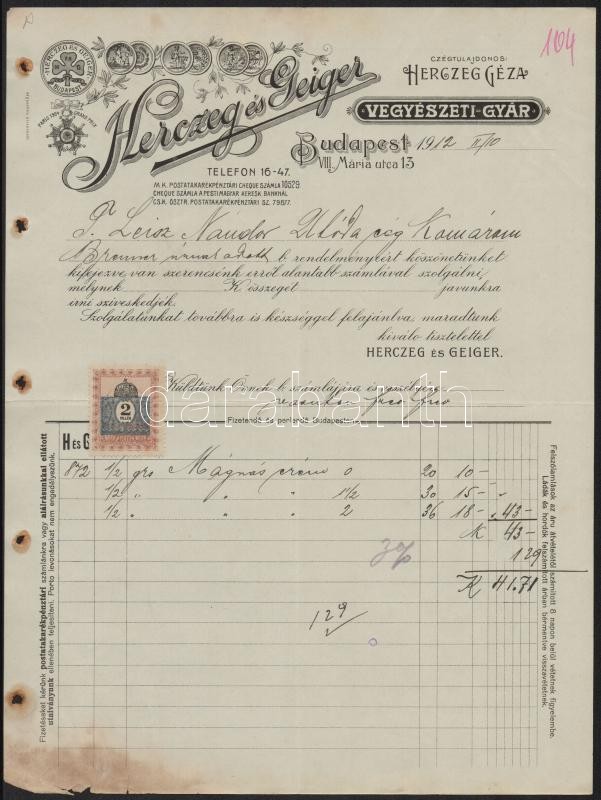 104
HERCZEG ÉS GEIGER
BUDAPEST
PARIS 1904 GRAND PRIX
Herczeg és Geiger
CZÉGTULAJDONOS:
HERCZEG GÉZA
VEGYÉSZETI-GYÁR
Budapest 1912 II/10
VIII, Mária utca 13
TELEFON 16-47.
M. K. POSTATAKARÉKPÉNZTÁRI CHEQUE SZÁMLA 10529.
CHEQUE SZÁMLA A PESTI MAGYAR KERESK. BANKNÁL
CS. K. ÖSZTR. POSTATAKARÉKPÉNZTÁRI SZ. 79817.
T. Leisz Nándor Utóda cég Komárom
Brenner úrnak adott b. rendelményéért köszönetünket
kifejezve, van szerencsénk erről alantabb számlával szolgálni,
melynek K összegét javunkra
irni sziveskedjék.
Szolgálatunkat továbbra is készséggel felajánlva, maradtunk
kiváló tisztelettel
HERCZEG és GEIGER.
Küldtünk Önnek b. számlájára és veszélyére
2
FILLÉR
darabanth
Fizetendő és perlendő Budapesten.
H és G
872 1/2 gro Mágnás créme 0 20 10 –
1/2 " " " 1 1/2 30 15 – "
1/2 " " " 2 36 18 – " 43 –
K 43 –
3% 1 29
K 41.71
1 29
Fizetéseket kérünk postatakarékpénztári számlánkra vagy aláírásunkkal ellátott
utalványunk ellenében teljesíteni. Porto levonásokat nem engedélyezünk.
Felszólamlások az áru átvételétől számított 8 napon belül vétetnek figyelembe.
Ládák és hordók felszámított árban bérmentve visszavétetnek.